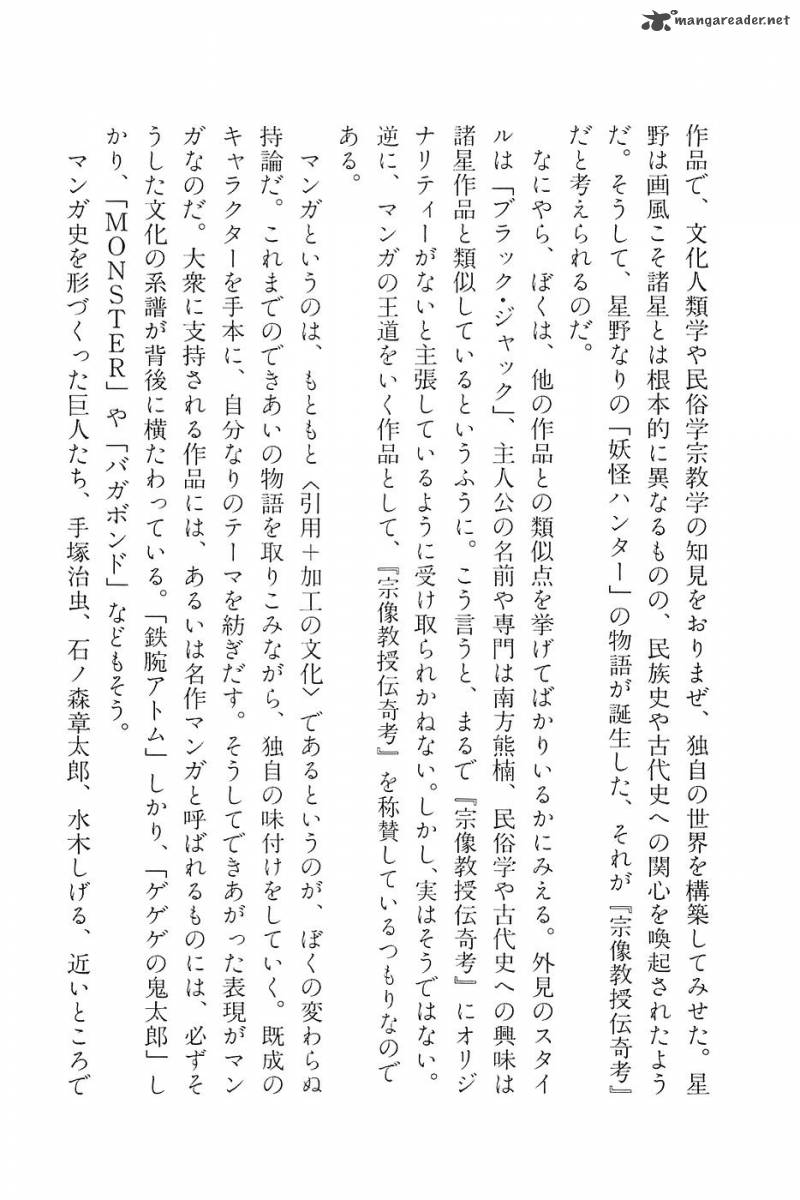 mangareader.net
作品で、文化人類学や民俗学宗教学の知見をおりまぜ、独自の世界を構築してみせた。星
野は画風こそ諸星とは根本的に異なるものの、民族史や古代史への関心を喚起されたよう
だ。そうして、星野なりの「妖怪ハンター」の物語が誕生した、それが『宗像教授伝奇考』
だと考えられるのだ。
なにやら、ぼくは、他の作品との類似点を挙げてばかりいるかにみえる。外見のスタイ
ルは「ブラック・ジャック」、主人公の名前や専門は南方熊楠、民俗学や古代史への興味は
諸星作品と類似しているというふうに。こう言うと、まるで『宗像教授伝奇考』にオリジ
ナリティーがないと主張しているように受け取られかねない。しかし、実はそうではない。
逆に、マンガの王道をいく作品として、『宗像教授伝奇考』を称賛しているつもりなので
ある。
マンガというのは、もともと〈引用＋加工の文化〉であるというのが、ぼくの変わらぬ
持論だ。これまでのできあいの物語を取りこみながら、独自の味付けをしていく。既成の
キャラクターを手本に、自分なりのテーマを紡ぎだす。そうしてできあがった表現がマン
ガなのだ。大衆に支持される作品には、あるいは名作マンガと呼ばれるものには、必ずそ
うした文化の系譜が背後に横たわっている。「鉄腕アトム」しかり、「ゲゲゲの鬼太郎」し
かり、「MONSTER」や「バガボンド」などもそう。
マンガ史を形づくった巨人たち、手塚治虫、石ノ森章太郎、水木しげる、近いところで